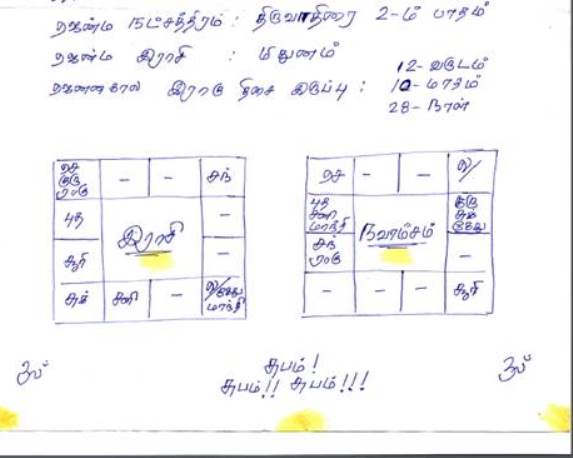 ஜன்ம நட்சத்திரம் : திருவாதிரை 2-ம் பாதம்
ஜன்ம இராசி : மிதுனம்
ஜனனகால இராகு திசை இருப்பு : 12- வருடம்
10- மாதம்
28- நாள்
செ குரு ராகு - - சந்
புத இராசி -
சூரி -
சுக் சனி - ல/கேது மாந்தி
செ - - ல/
புத சனி மாந்தி நவாம்சம் குரு சுக் கேது
சந் ராகு -
- - - சூரி
சுபம் !
சுபம்!! சுபம்!!!